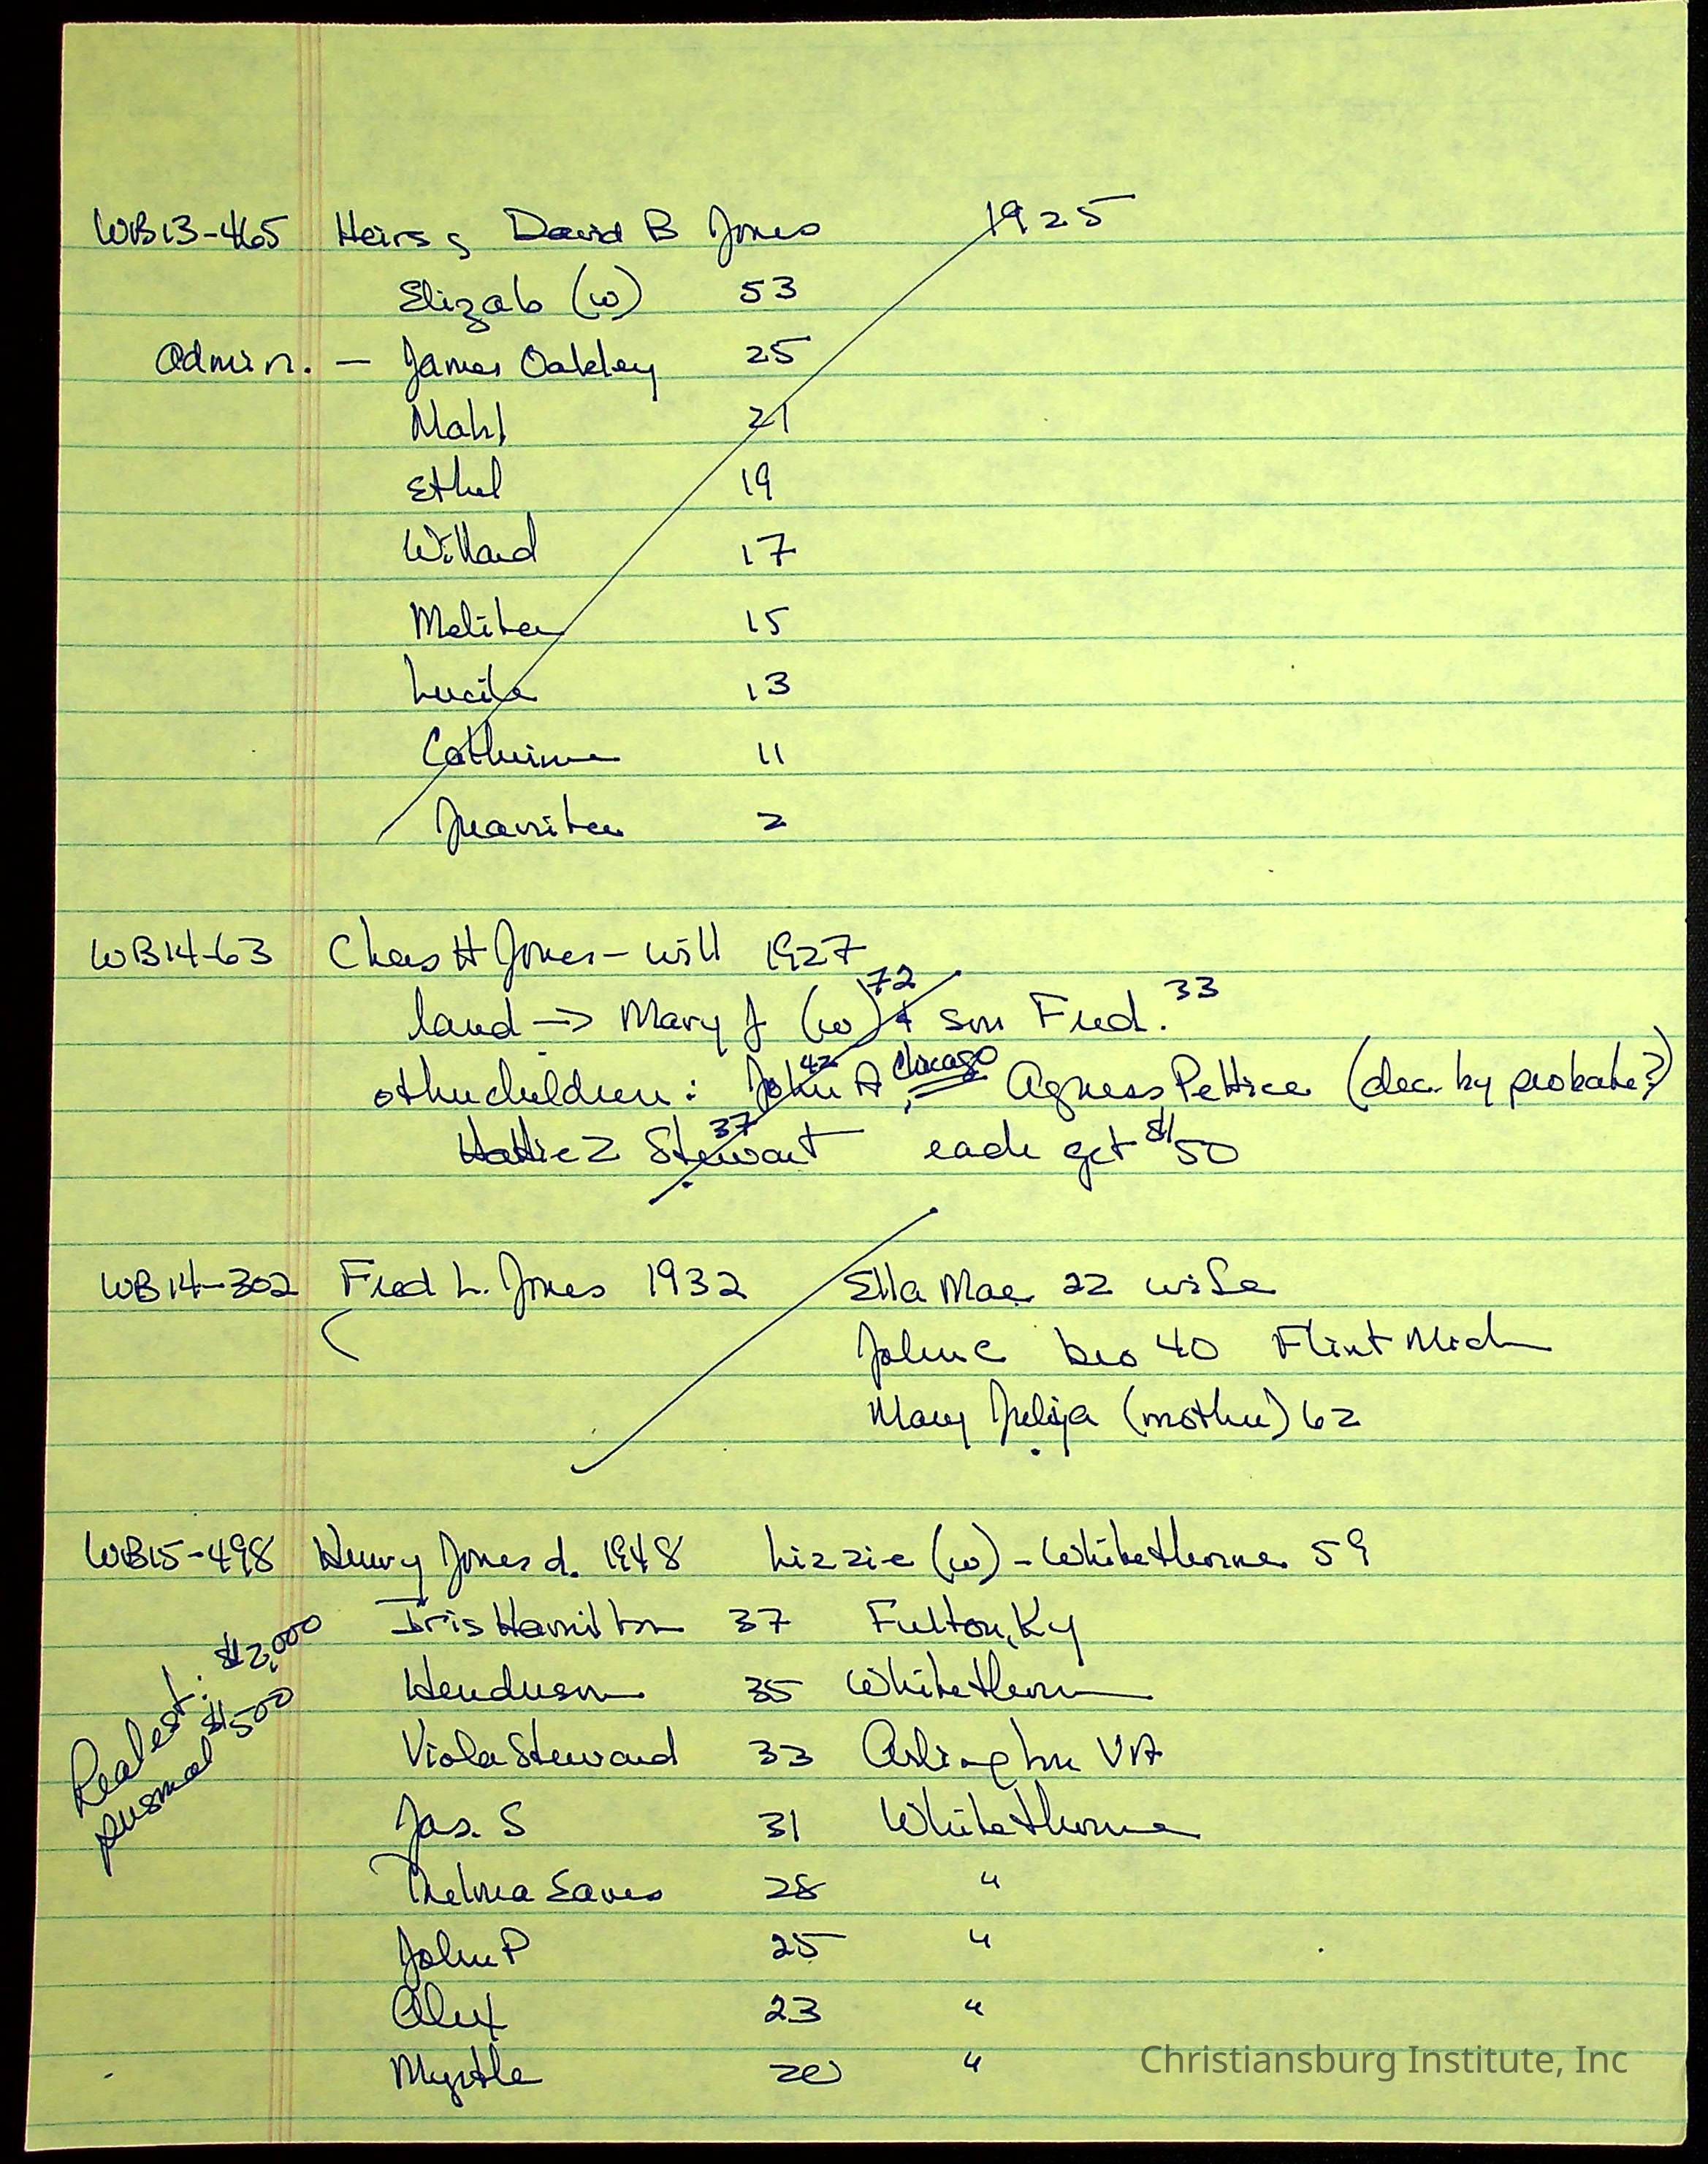 WB13-465 Heirs of David B Jones 1925
Elizab (w) 53
Admin. — James Oakley 25
Mahl 21
Ethel 19
Willard 17
Melita 15
Lucile 13
Catherine 11
Juanita 2
WB14-63 Chas H Jones - will 1927
land -> Mary J (w) 72 & son Fred. 33
other children: John A 42, Chicago Agness Pettice (dec. by probate?)
Hattie Z Stewart 37 each get $50
WB14-302 Fred L. Jones 1932 Ella Mae 22 wife
John C bro 40 Flint Mich
Mary Julija (mother) 62
WB15-498 Henry Jones d. 1948 Lizzie (w) - Whitethorne 59
Iris Hamilton 37 Fulton, Ky
Real est: $2,000
personal $500
Henderson 35 Whitethorne
Viola Steward 33 Arlington VA
Jas. S 31 Whitethorne
Thelma Eaves 28 "
John P 25 "
Alex 23 "
Myrtle 20 "
Christiansburg Institute, Inc